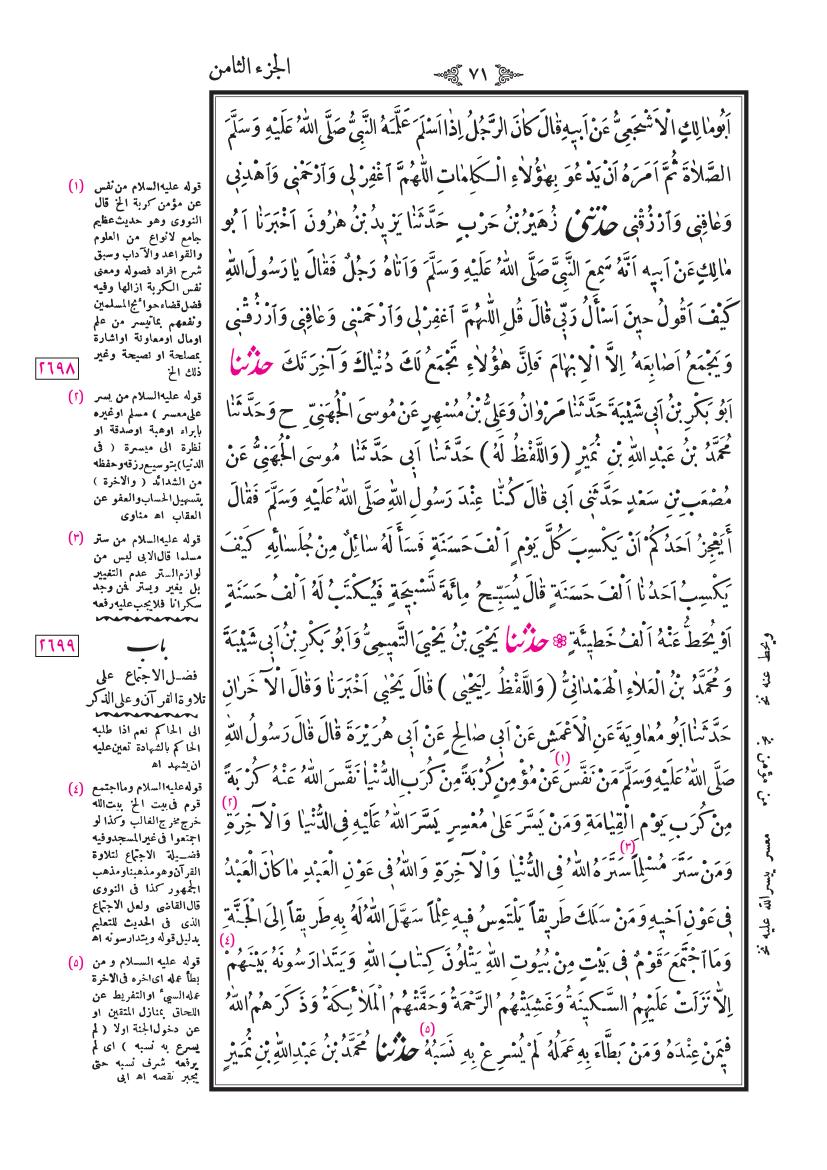 الجزء الثامن
٧١
اَبُومَالِكٍ الْاَشْجَعِىُّ عَنْ اَبِيهِ قَالَ كَانَ الرَّجُلُ اِذَا اَسْلَمَ عَلَّمَهُ النَّبِىُّ صَلَّى اللهُ عَلَيْهِ وَسَلَّمَ
الصَّلاَةَ ثُمَّ اَمَرَهُ اَنْ يَدْعُوَ بِهٰؤُلَاءِ الْكَلِمَاتِ اللّٰهُمَّ اغْفِرْ لِى وَارْحَمْنِى وَاهْدِنِى
وَعَافِنِى وَارْزُقْنِى حَدَّثَنِى زُهَيْرُ بْنُ حَرْبٍ حَدَّثَنَا يَزِيدُ بْنُ هٰرُونَ اَخْبَرَنَا اَبُو
مَالِكٍ عَنْ اَبِيهِ اَنَّهُ سَمِعَ النَّبِىَّ صَلَّى اللهُ عَلَيْهِ وَسَلَّمَ وَاَتَاهُ رَجُلٌ فَقَالَ يَا رَسُولَ اللهِ
كَيْفَ اَقُولُ حِينَ اَسْأَلُ رَبِّى قَالَ قُلِ اللّٰهُمَّ اغْفِرْ لِى وَارْحَمْنِى وَعَافِنِى وَارْزُقْنِى
وَيَجْمَعُ اَصَابِعَهُ اِلاَّ الْاِبْهَامَ فَاِنَّ هٰؤُلَاءِ تَجْمَعُ لَكَ دُنْيَاكَ وَآخِرَتَكَ حَدَّثَنَا
اَبُو بَكْرِ بْنُ اَبِى شَيْبَةَ حَدَّثَنَا مَرْوَانُ وَعَلِىُّ بْنُ مُسْهِرٍ عَنْ مُوسَى الْجُهَنِىِّ ح وَحَدَّثَنَا
مُحَمَّدُ بْنُ عَبْدِ اللهِ بْنِ نُمَيْرٍ (وَاللَّفْظُ لَهُ) حَدَّثَنَا اَبِى حَدَّثَنَا مُوسَى الْجُهَنِىُّ عَنْ
مُصْعَبِ بْنِ سَعْدٍ حَدَّثَنِى اَبِى قَالَ كُنَّا عِنْدَ رَسُولِ اللهِ صَلَّى اللهُ عَلَيْهِ وَسَلَّمَ فَقَالَ
أَيَعْجِزُ اَحَدُكُمْ اَنْ يَكْسِبَ كُلَّ يَوْمٍ اَلْفَ حَسَنَةٍ فَسَأَلَهُ سَائِلٌ مِنْ جُلَسَائِهِ كَيْفَ
يَكْسِبُ اَحَدُنَا اَلْفَ حَسَنَةٍ قَالَ يُسَبِّحُ مِائَةَ تَسْبِيحَةٍ فَيُكْتَبُ لَهُ اَلْفُ حَسَنَةٍ
اَوْ يُحَطُّ عَنْهُ اَلْفُ خَطِيئَةٍ ❁ حَدَّثَنَا يَحْيَى بْنُ يَحْيَى التَّمِيمِىُّ وَاَبُو بَكْرِ بْنُ اَبِى شَيْبَةَ
وَمُحَمَّدُ بْنُ الْعَلَاءِ الْهَمْدَانِىُّ (وَاللَّفْظُ لِيَحْيٰى) قَالَ يَحْيٰى اَخْبَرَنَا وَقَالَ الْآخَرَانِ
حَدَّثَنَا اَبُو مُعَاوِيَةَ عَنِ الْاَعْمَشِ عَنْ اَبِى صَالِحٍ عَنْ اَبِى هُرَيْرَةَ قَالَ قَالَ رَسُولُ اللهِ
صَلَّى اللهُ عَلَيْهِ وَسَلَّمَ مَنْ نَفَّسَ (١) عَنْ مُؤْمِنٍ كُرْبَةً مِنْ كُرَبِ الدُّنْيَا نَفَّسَ اللهُ عَنْهُ كُرْبَةً
مِنْ كُرَبِ يَوْمِ الْقِيَامَةِ وَمَنْ يَسَّرَ عَلٰى مُعْسِرٍ يَسَّرَ اللهُ عَلَيْهِ فِى الدُّنْيَا وَالْآخِرَةِ (٢)
وَمَنْ سَتَرَ مُسْلِماً (٣) سَتَرَهُ اللهُ فِى الدُّنْيَا وَالْآخِرَةِ وَاللهُ فِى عَوْنِ الْعَبْدِ مَا كَانَ الْعَبْدُ
فِى عَوْنِ اَخِيهِ وَمَنْ سَلَكَ طَرِيقاً يَلْتَمِسُ فِيهِ عِلْماً سَهَّلَ اللهُ لَهُ بِهِ طَرِيقاً اِلَى الْجَنَّةِ
وَمَا اجْتَمَعَ قَوْمٌ فِى بَيْتٍ مِنْ بُيُوتِ اللهِ يَتْلُونَ كِتَابَ اللهِ وَيَتَدَارَسُونَهُ بَيْنَهُمْ (٤)
اِلاَّ نَزَلَتْ عَلَيْهِمُ السَّكِينَةُ وَغَشِيَتْهُمُ الرَّحْمَةُ وَحَفَّتْهُمُ الْمَلَائِكَةُ وَذَكَرَهُمُ اللهُ
فِيمَنْ عِنْدَهُ وَمَنْ بَطَّاَ بِهِ عَمَلُهُ لَمْ يُسْرِعْ بِهِ نَسَبُهُ (٥) حَدَّثَنَا مُحَمَّدُ بْنُ عَبْدِ اللهِ بْنِ نُمَيْرٍ
(١) قوله عليه السلام من نفس
عن مؤمن كربة الخ قال
النووى وهو حديث عظيم
جامع لانواع من العلوم
والقواعد والآداب وسبق
شرح افراد فصوله ومعنى
نفس الكربة ازالها وفيه
فضل قضاء حوائج المسلمين
ونفعهم بماتيسر من علم
اومال اومعاونة اواشارة
بمصلحة او نصيحة وغير
ذلك الخ
٢٦٩٨
(٢) قوله عليه السلام من يسر
على معسر) مسلم اوغيره
بابراء اوهبة اوصدقة او
نظرة الى ميسرة (فى
الدنيا) بتوسيع رزقه وحفظه
من الشدائد (والآخرة)
بتسهيل الحساب والعفو عن
العقاب اه مناوى
(٣) قوله عليه السلام من ستر
مسلما قال الابى ليس من
لوازم الستر عدم التغيير
بل يغير ويستر فمن وجد
سكرانا فلا يجب عليه رفعه
٢٦٩٩
باب
فضل الاجتماع على
تلاوة القرآن وعلى الذكر
الى الحاكم نعم اذا طلبه
الحاكم بالشهادة تعين عليه
ان يشهد اه
(٤) قوله عليه السلام وما اجتمع
قوم فى بيت الخ بيت الله
خرج مخرج الغالب وكذا لو
اجتمعوا فى غير المسجد وفيه
فضيلة الاجتماع لتلاوة
القرآن وهو مذهبنا ومذهب
الجمهور كذا فى النووى
قال القاضى ولعل الاجتماع
الذى فى الحديث للتعليم
بدليل قوله ويتدارسونه اه
(٥) قوله عليه السلام ومن
بطأ عمله اى اخره فى الآخرة
عمله السيئ او التفريط عن
اللحاق بمنازل المتقين او
عن دخول الجنة اولا (لم
يسرع به نسبه) اى لم
يرفعه شرف نسبه حتى
يجبر نقصه اه ابى
ويحط عنه نخ
من مؤمن نخ
معسر يسر الله عليه نخ